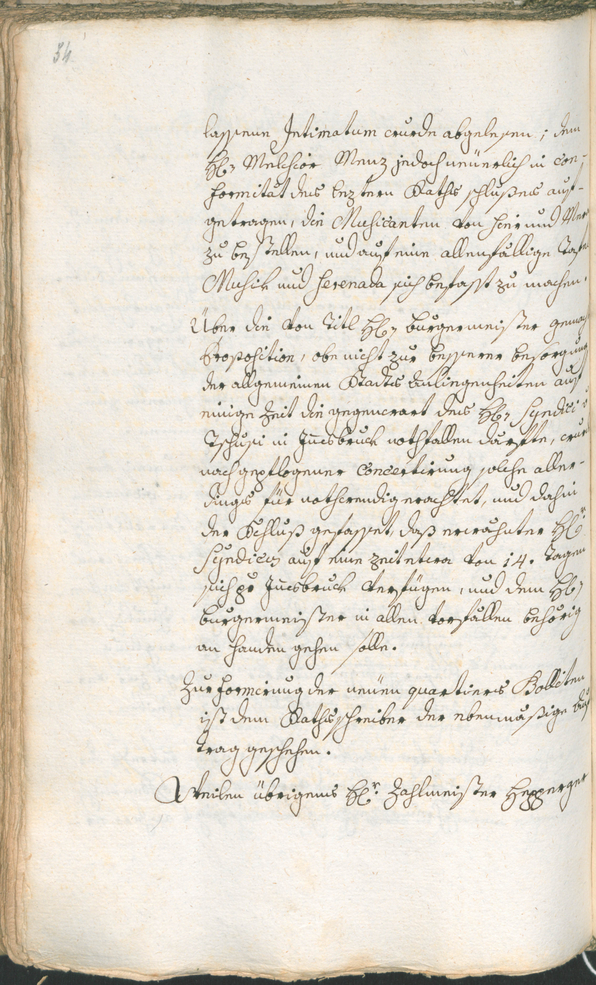 34
lassene Intimatum wurde abgelesen; dem
Hr: Melchior Menz jedoch neuerlich in Con-
formität des leztern Raths schlußes auf-
getragen, die Musicanten von hier und
zu bestellen, und auf eine allenfällige Tafel
Musik und Serenada sich befasst zu machen.
Über die von Titl Hr: burgermeister gemachte
Proposition, obe nicht zur besserer besorgung
der allgemeinen Stadts anliegenheiten auf
einige Zeit die gegenwart des Hr: Syndici
Tschusi in Innsbruck nothfallen dürfte, wurde
nach gepflogener Concertirung solche aller-
dings für nothwendig erachtet, und dahin
der Schluß gefasset, daß erwähnter Hr:
Syndicus auf eine zeit etwa von 14. Tagen
sich gu Innsbruck verfügen, und dem Hr:
burgermeister in allen vorfällen behörig
an handen gehen solle.
Zur formirung der neüen quartiers Bolliten
ist dem Rathsschreiber der ebenmäßige auf
trag geschehen.
Weilen übrigens Hr. Zahlmeister Hepperger